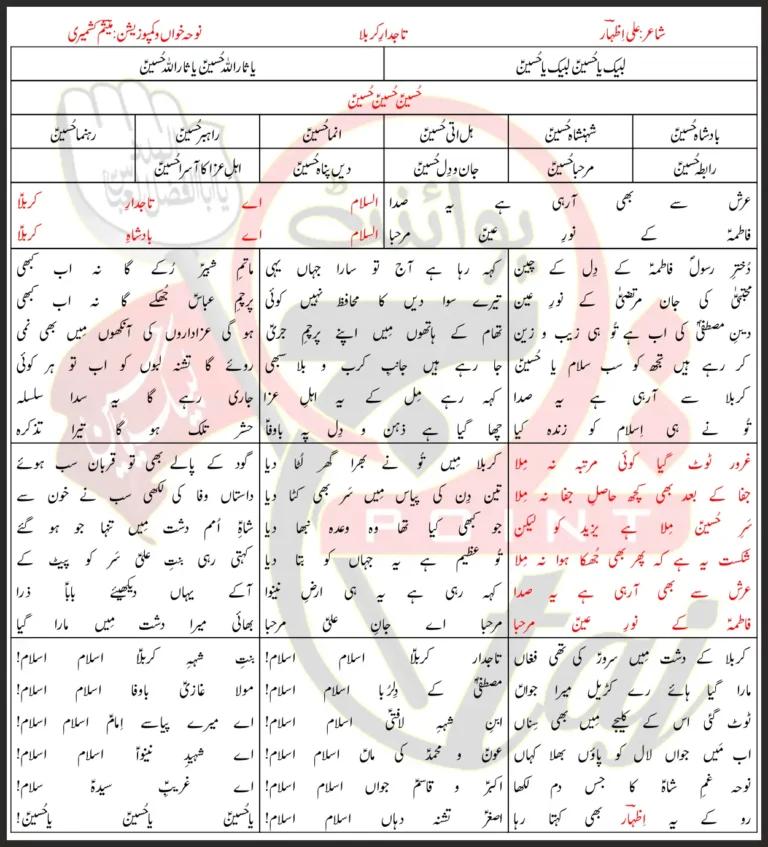 شاعر: علی اظہارؔ
تاجدارِ کربلا
نوحہ خواں و کمپوزیشن: میثم کشمیری
لبیک یا حُسینؑ لبیک یا حُسینؑ
یا ثاراللہ حُسینؑ یا ثاراللہ حُسینؑ
حُسینؑ حُسینؑ حُسینؑ
بادشاہ حُسینؑ
شہنشاہ حُسینؑ
ہل اتٰی حُسینؑ
انما حُسینؑ
راہبر حُسینؑ
رہنما حُسینؑ
رابطہ حُسینؑ
مرحبا حُسینؑ
جان و دِل حُسینؑ
دیں پناہ حُسینؑ
اہلِ عزا کا آسرا حُسینؑ
عرش سے بھی آرہی ہے یہ صدا
السلام اے تاجدارِ کربلاؑ
فاطمہؑ کے نورِ عینؑ مرحبا
السلام اے بادشاہِ کربلاؑ
دُخترِ رسولؐ فاطمہؑ کے دِل کے چین
مجتبیٰؑ کی جان مرتضیٰؑ کے نورِ عین
دینِ مصطفیؐ کی اب ہے تُو ہی زیب و زین
کر رہے ہیں تجھ کو سب سلام یا حُسینؑ
کربلا سے آرہی ہے یہ صدا
تُو نے ہی اِسلام کو زندہ کیا
کہہ رہا ہے آج تو سارا جہاں یہی
تیرے سوا دیں کا محافظ نہیں کوئی
تھام کے ہاتھوں میں اپنے پرچمِ جریؑ
جا رہے ہیں جانبِ کرب و بلا سبھی
کہہ رہے مِل کے یہ اہلِ عزا
چھا گیا ہے ذہن و دِل پہ باوفاؑ
ماتمِ شبیرؑ رُکے گا نہ اب کبھی
پرچمِ عباسؑ جُھکے گا نہ اب کبھی
ہو گی عزاداروں کی آنکھوں میں بھی نمی
روئے گا تشنہ لبوں کو اب تو ہر کوئی
جاری رہے گا یہ سدا سلسلہ
حشر تلک ہو گا تیرا تذکرہ
غرور ٹوٹ گیا کوئی مرتبہ نہ مِلا
جفا کے بعد بھی کچھ حاصلِ جفا نہ مِلا
سَرِ حُسینؑ مِلا ہے یزید کو لیکن
شکست یہ ہے کہ پھر بھی جُھکا ہوا نہ مِلا
عرش سے بھی آرہی ہے یہ صدا
فاطمہؑ کے نورِ عینؑ مرحبا
کربلا میں تُو نے بھرا گھر لُٹا دیا
تین دِن کی پیاس میں سَر بھی کٹا دیا
جو کبھی کیا تھا وہ وعدہ نبھا دیا
تُو عظیم ہے یہ جہاں کو بتا دیا
کہہ رہی ہے یہ ہی ارضِ نینوا
مرحبا اے جانِ علیؑ مرحبا
گود کے پالے بھی تو قربان سب ہوئے
داستاں وفا کی لکھی سب نے خون سے
شاہِؑ اُمم دشت میں تنہا جو ہو گئے
کہتی رہی بنتِ علیؑ سَر کو پیٹ کے
آکے یہاں دیکھیئے باباؑ ذرا
بھائی میرا دشت میں مارا گیا
کربلا کے دشت میں سرورؑ کی تھی فغاں
مارا گیا ہائے رے کڑیل میرا جواںؑ
ٹوٹ گئی اس کے کلیجے میں بھی سِناں
اب میں جواں لال کو پاؤں بھلا کہاں
نوحہ غمِ شاہؑ کا جس دم لکھا
رو کے یہ اِظہارؔ بھی کہتا رہا
تاجدارِ کربلاؑ اسلام اسلام!
مصطفیؐ کے دِلرُبا اسلام اسلام!
ابنِ شہہِ لافتیٰؑ اسلام اسلام!
عونؑ و محمدؑ کی ماںؑ اسلام اسلام!
اکبرؑ و قاسمؑ جواں اسلام اسلام!
اصغرؑ تشنہ دہاں اسلام اسلام!
بنتِ شہہِ کربلاؑ اسلام اسلام!
مولا غازیؑ باوفا اسلام اسلام!
اے میرے پیاسے اِمامؑ اسلام اسلام!
اے شہیدِ نینواؑ اسلام اسلام!
اے غریبِؑ سیدہؑ سلام!
یا حُسینؑ یا حُسینؑ یا حُسینؑ!
پوائنٹ
تاج
POINT
taj